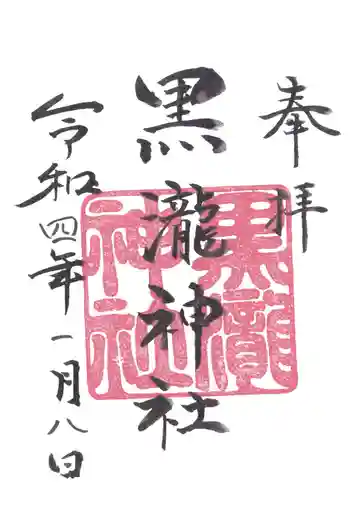 奉拝
黒瀧神社
黒瀧神社
令和四年一月八日